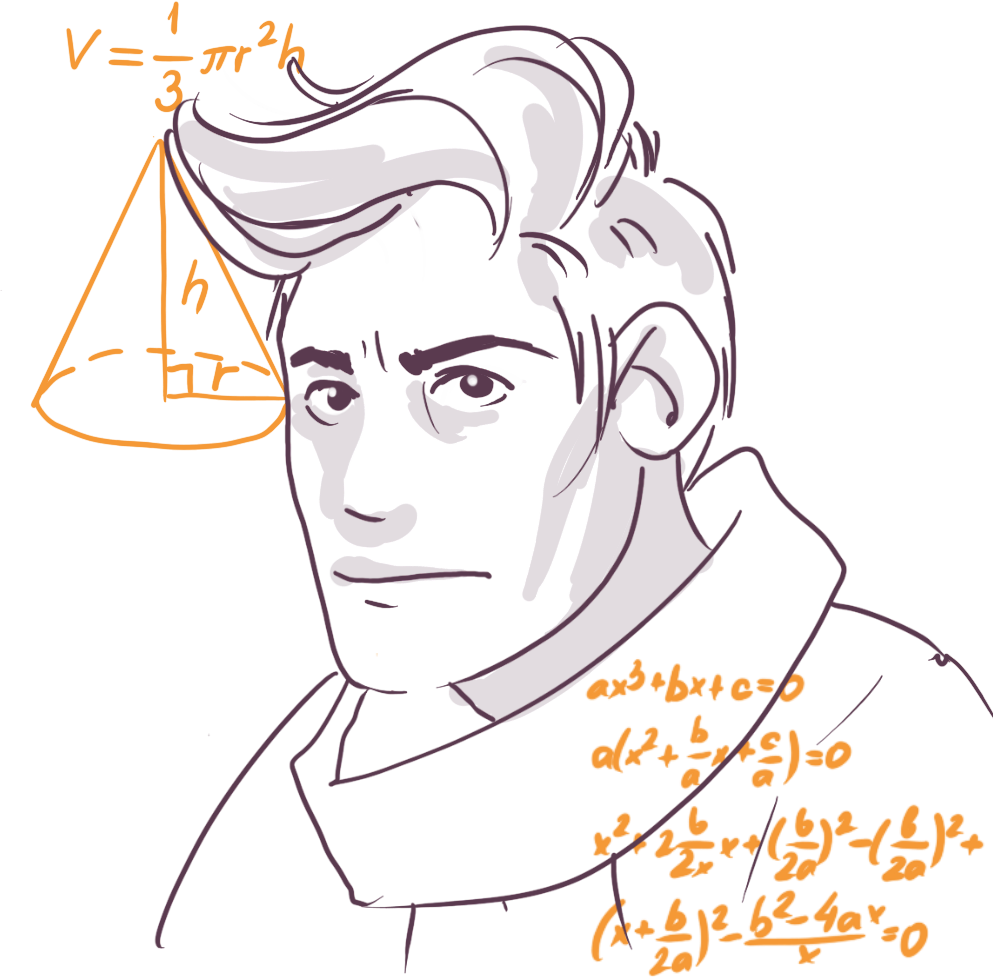 V = 1/3 πr²h
h
r
ax³+bx+c=0
a(x²+b/a x+c/a)=0
x²+2 b/2x x+(b/2a)²-(b/2a)²+
(x+b/2a)²-b²-4aˣ/x=0